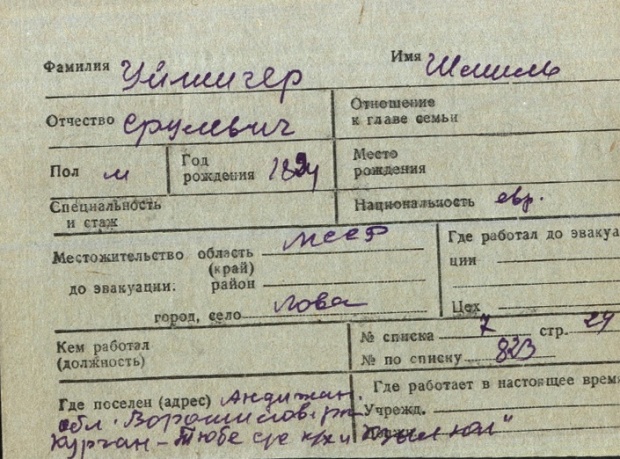 Фамилия Уймигер Имя Шмиль
Отчество Срулевич
Отношение
к главе семьи
Пол м
Год
рождения 1894
Место
рождения
Специальность
и стаж
Национальность евр.
Местожительство область МССР
(край)
до эвакуации: район
город, село
Где работал до эвакуа
ции
Цех
Кем работал
(должность)
№ списка 7 стр. 29
№ по списку 823
Где поселен (адрес) Андижан.
обл. Ворошилов. рн
Курган-Тюбе с/с к/х
Где работает в настоящее время
Учрежд.